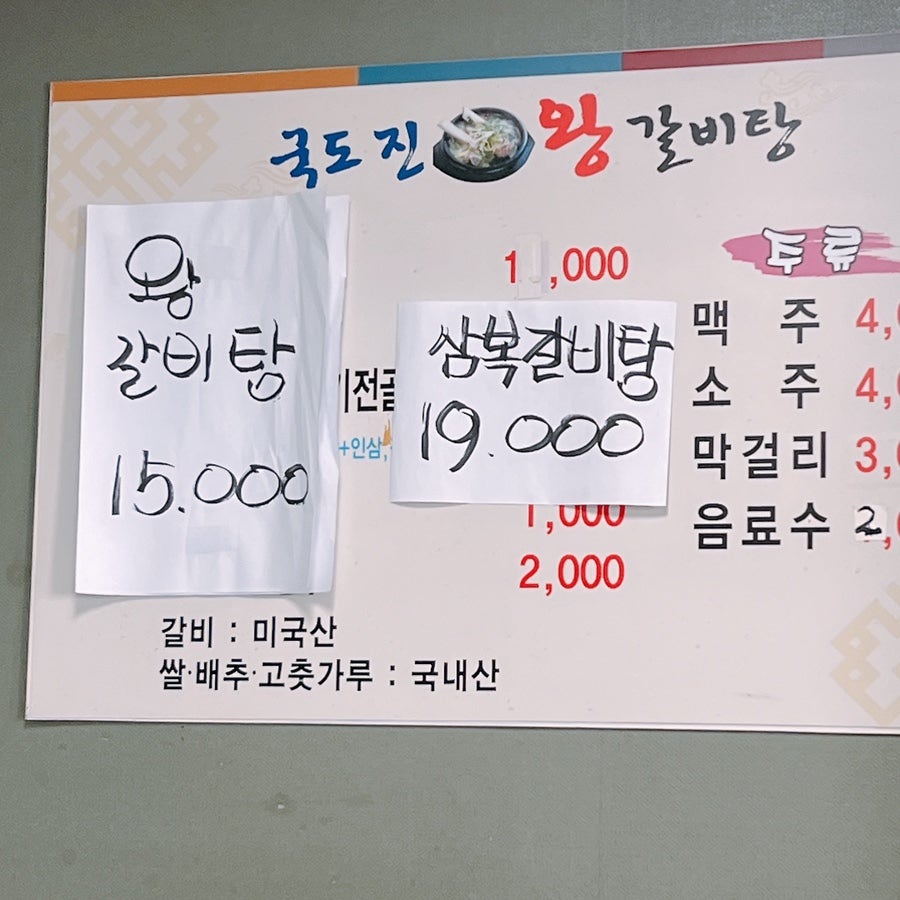 국도진 왕갈비탕
왕
갈비탕
15.000
1 ,000
기전골
+인삼,
삼복갈비탕
19.000
1,000
2,000
주류
맥 주 4,
소 주 4,
막걸리 3,
음료수 2
갈비 : 미국산
쌀·배추·고춧가루 : 국내산